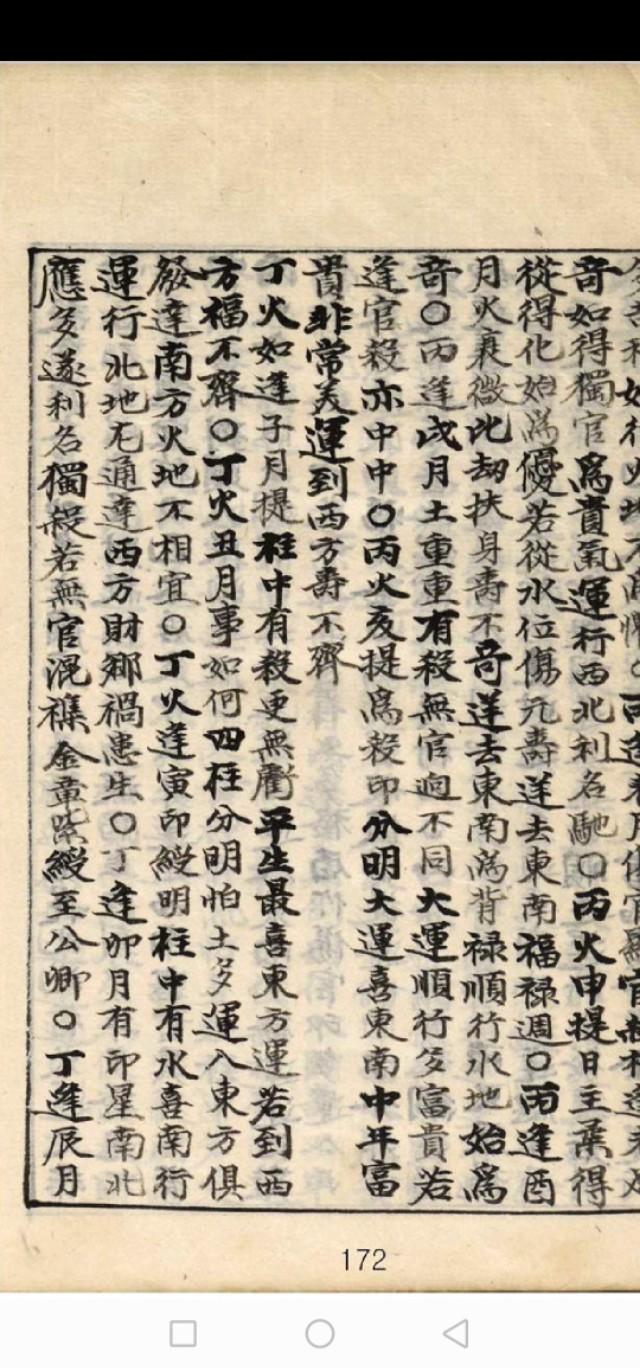 奇如得獨官爲貴氣運行西北利名馳○丙火申提日主柔得
從得化始爲優若從水位傷元壽逆去東南福禄週○丙逢酉
月火衰微比劫扶身壽不奇逆去東南為背禄順行水地始爲
奇○丙逢戌月土重重有殺無官逈不同大運順行多富貴若
逢官殺亦中中○丙火亥提爲殺印分明大運喜東南中年富
貴非常美運到西方壽不齊
丁火如逢子月提柱中有殺更無衢平生最喜東方運若到西
方福不齊○丁火丑月事如何四柱分明怕土多運入東方俱
發達南方火地不相宜○丁火逢寅印綬明柱中有水喜南行
運行北地尤通達西方財鄉禍患生○丁逢卯月有印星南北
應多遂利名獨殺若無官混襍金章紫綬至公卿○丁逢辰月
172